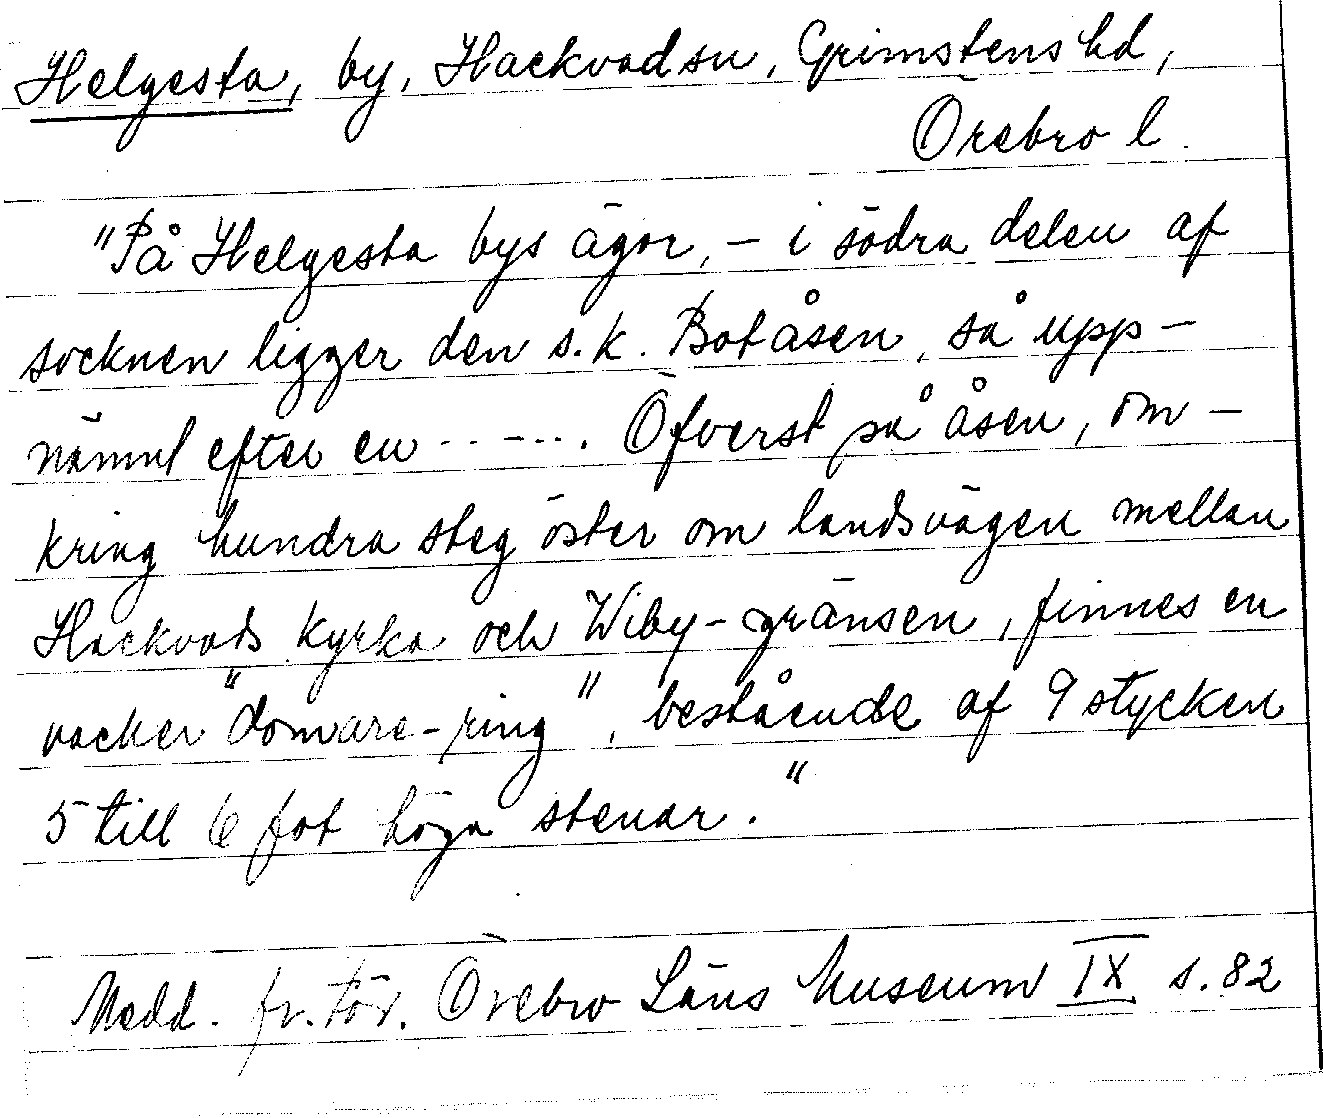 Helgesta, by, Hackvad sn, Grimstens hd,
Örebro l.
"På Helgesta bys ägor, – i södra delen af
socknen ligger den s.k. Botåsen, så upp-
nämnt efter en ------. Öfverst på åsen, om-
kring hundra steg öster om landsvägen mellan
Hackvads kyrka och Wiby-gränsen, finnes en
vacker "domare-ring", bestående af 9 stycken
5 till 6 fot höga stenar."
Medd. fr. för. Örebro Läns Museum IX s. 82